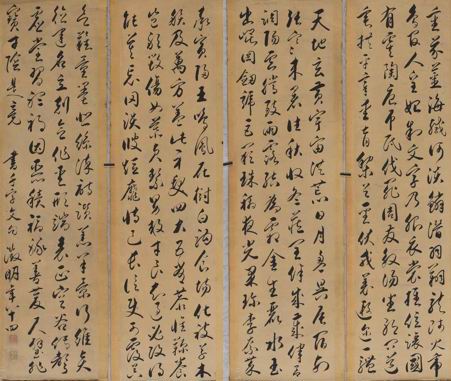 天地玄黃宇宙洪荒日月盈昃辰宿列
張寒來暑往秋收冬藏閏餘成歲律呂
調陽雲騰致雨露結為霜金生麗水玉
出崑岡劍號巨闕珠稱夜光果珍李柰菜
重芥薑海鹹河淡鱗潛羽翔龍師火帝
鳥官人皇始制文字乃服衣裳推位讓國
有虞陶唐弔民伐罪周發殷湯坐朝問道
垂拱平章愛育黎首臣伏戎羌遐邇壹體
率賓歸王鳴鳳在樹白駒食場化被草木
賴及萬方蓋此身髮四大五常恭惟鞠養
豈敢毀傷女慕貞絜男效才良知過必改得
能莫忘罔談彼短靡恃己長信使可覆器
欲難量墨悲絲染詩讚羔羊景行維賢
德建名立剋念作聖形端表正空谷傳聲
虛堂習聽禍因惡積福緣善慶尺璧非
寶寸陰是競 書千字文 徵明